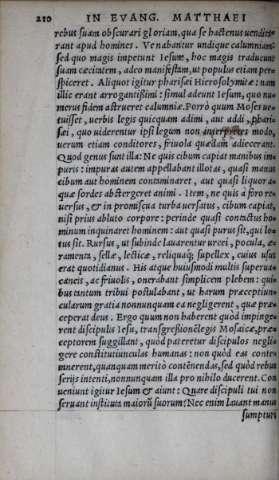 210 IN EVANG. MATTHAEI
rebus suam obscurari gloriam, qua se hactenus uendita-
rant apud homines. Venabantur undique calumniam:
sed quo magis impetunt Iesum, hoc magis traducunt
suam cæcitatem, adeo manifestam, ut populus etiam per-
spiceret. Aliquot igitur pharisæi Hierosolymitæ: nam
illic erant arrogantissimi: simul adeunt Iesum, quo nu-
merus fidem astrueret calumniæ. Porrò quum Moses ue-
tuisset, uerbis legis quicquam adimi, aut addi, phari-
sæi, quo uiderentur ipsi legum non interpretes modo,
uerum etiam conditores, friuola quædam adiecerant.
Quod genus sunt illa: Ne quis cibum capiat manibus im-
puris: impuras autem appellabant illotas, quasi manus
cibum aut hominem contaminaret, aut quasi liquor a-
quæ sordes abstergeret animi. Item, ne quis à foro re
uersus, & in promiscua turba uersatus, cibum capiat,
nisi prius abluto corpore: perinde quasi contactus ho-
minum inquinaret hominem: aut quasi purus sit, qui lo-
tus sit. Rursus, ut subinde lauarentur urcei, pocula, æ-
ramenta, sellæ, lecticæ, reliquaq; supellex, cuius usus
erat quotidianus. His atque huiusmodi multis superua-
caneis, ac friuolis, onerabant simplicem plebem: qui-
bus tantum tribui postulabant, ut harum præceptiun-
cularum gratia nonnunquam ea negligerent, quæ præ-
ceperat deus. Ergo quum non haberent quòd impinge-
rent discipulis Iesu, transgressionē legis Mosaicæ, præ-
ceptorem suggillant, quòd pateretur discipulos negli-
gere constitutiunculas humanas: non quòd eas conte-
mnerent, quanquam meritò contēnendas, sed quòd rebus
serijs intenti, nonnunquam illa pro nihilo ducerent. Con
ueniunt igitur Iesum & aiunt: Quare discipuli tui non
seruant instituta maiorū suorum? Nec enim lauant manus
sumpturi